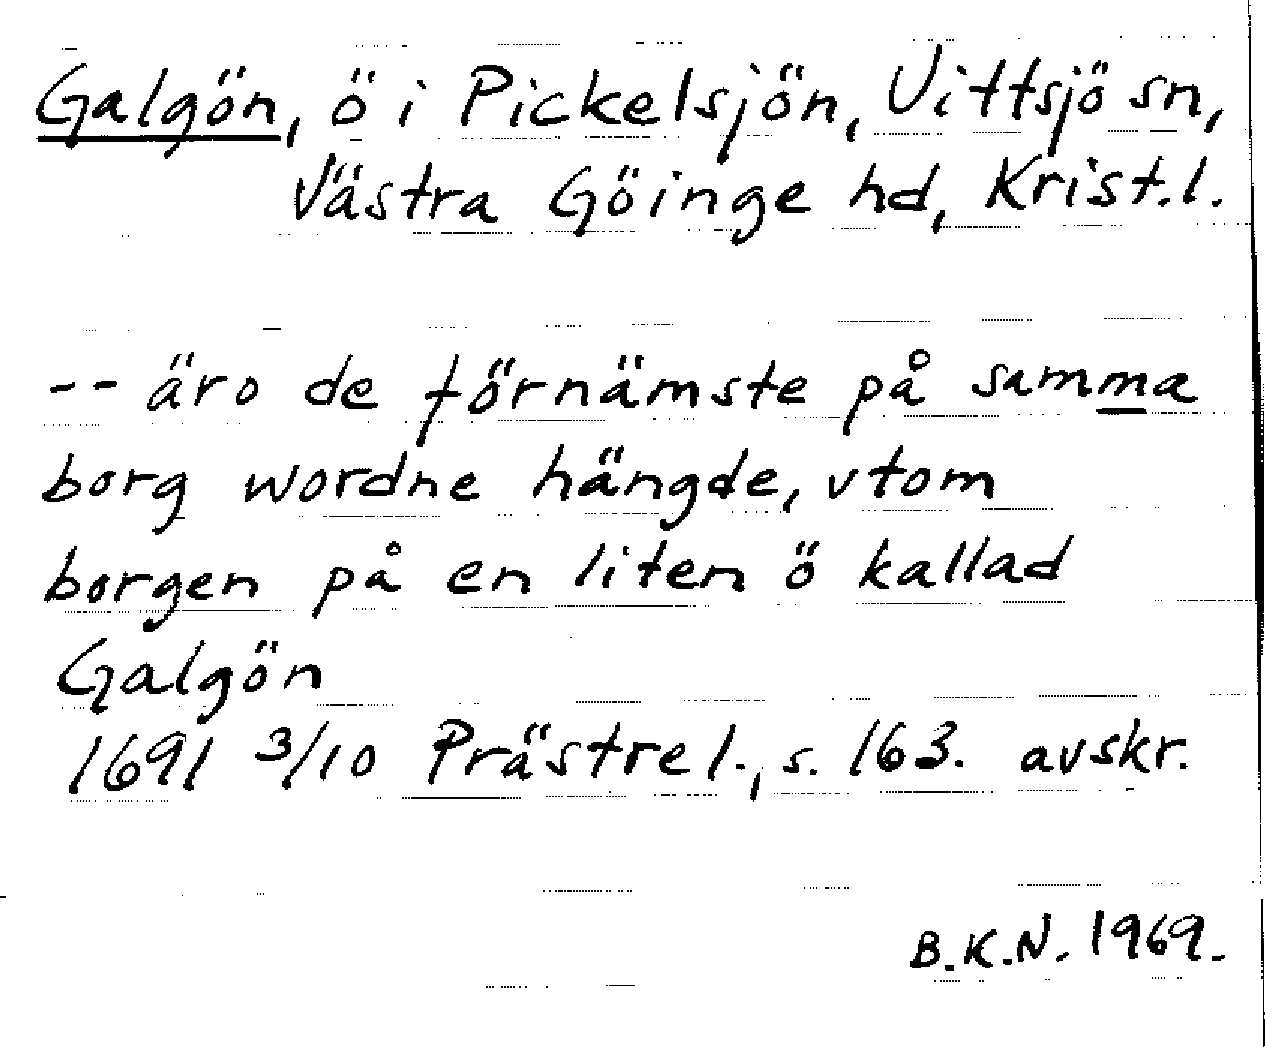 Galgön, ö i Pickelsjön, Vittsjö sn,
Västra Göinge hd, Krist.l.
-- äro de förnämste på samma
borg wordne hängde, vtom
borgen på en liten ö kallad
Galgön
1691 3/10 Prästrel., s. 163. avskr.
B.K.N. 1969.